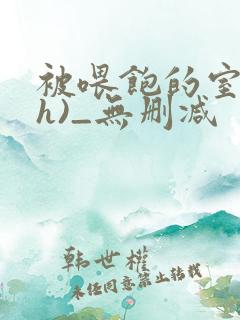 被喂饱的室
h)_无删减
韩世權
未经同意禁止转载